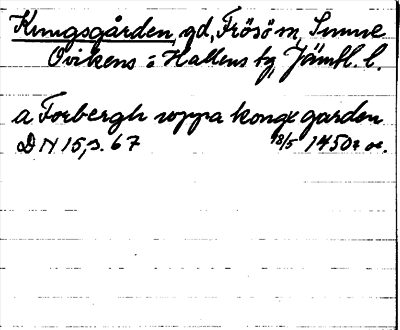 Kungsgården, gd, Frösö sn, Sunne
Ovikens o Hallens tg, Jämtl. l.
a Forbergh uppa kongx garden
DN 15, s. 67 18/5 1450 or.